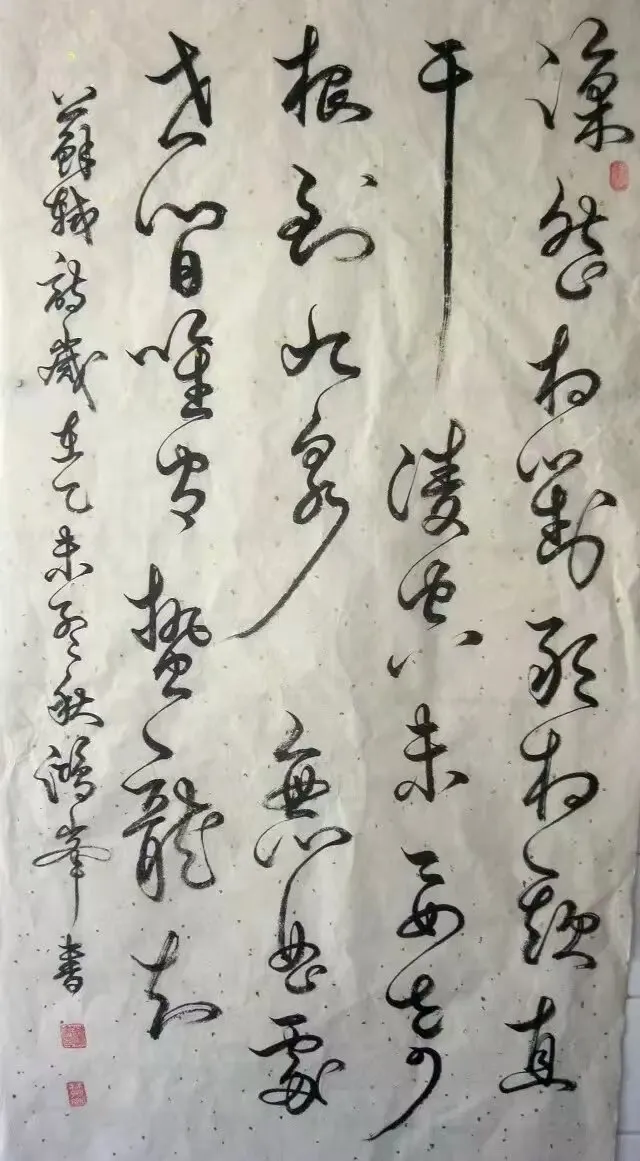 凜然相對敢相欺直
干凌空未要奇
根到九泉無曲處
世間唯有蟄龍知
蘇軾詩歲在乙未孟秋鴻峯書